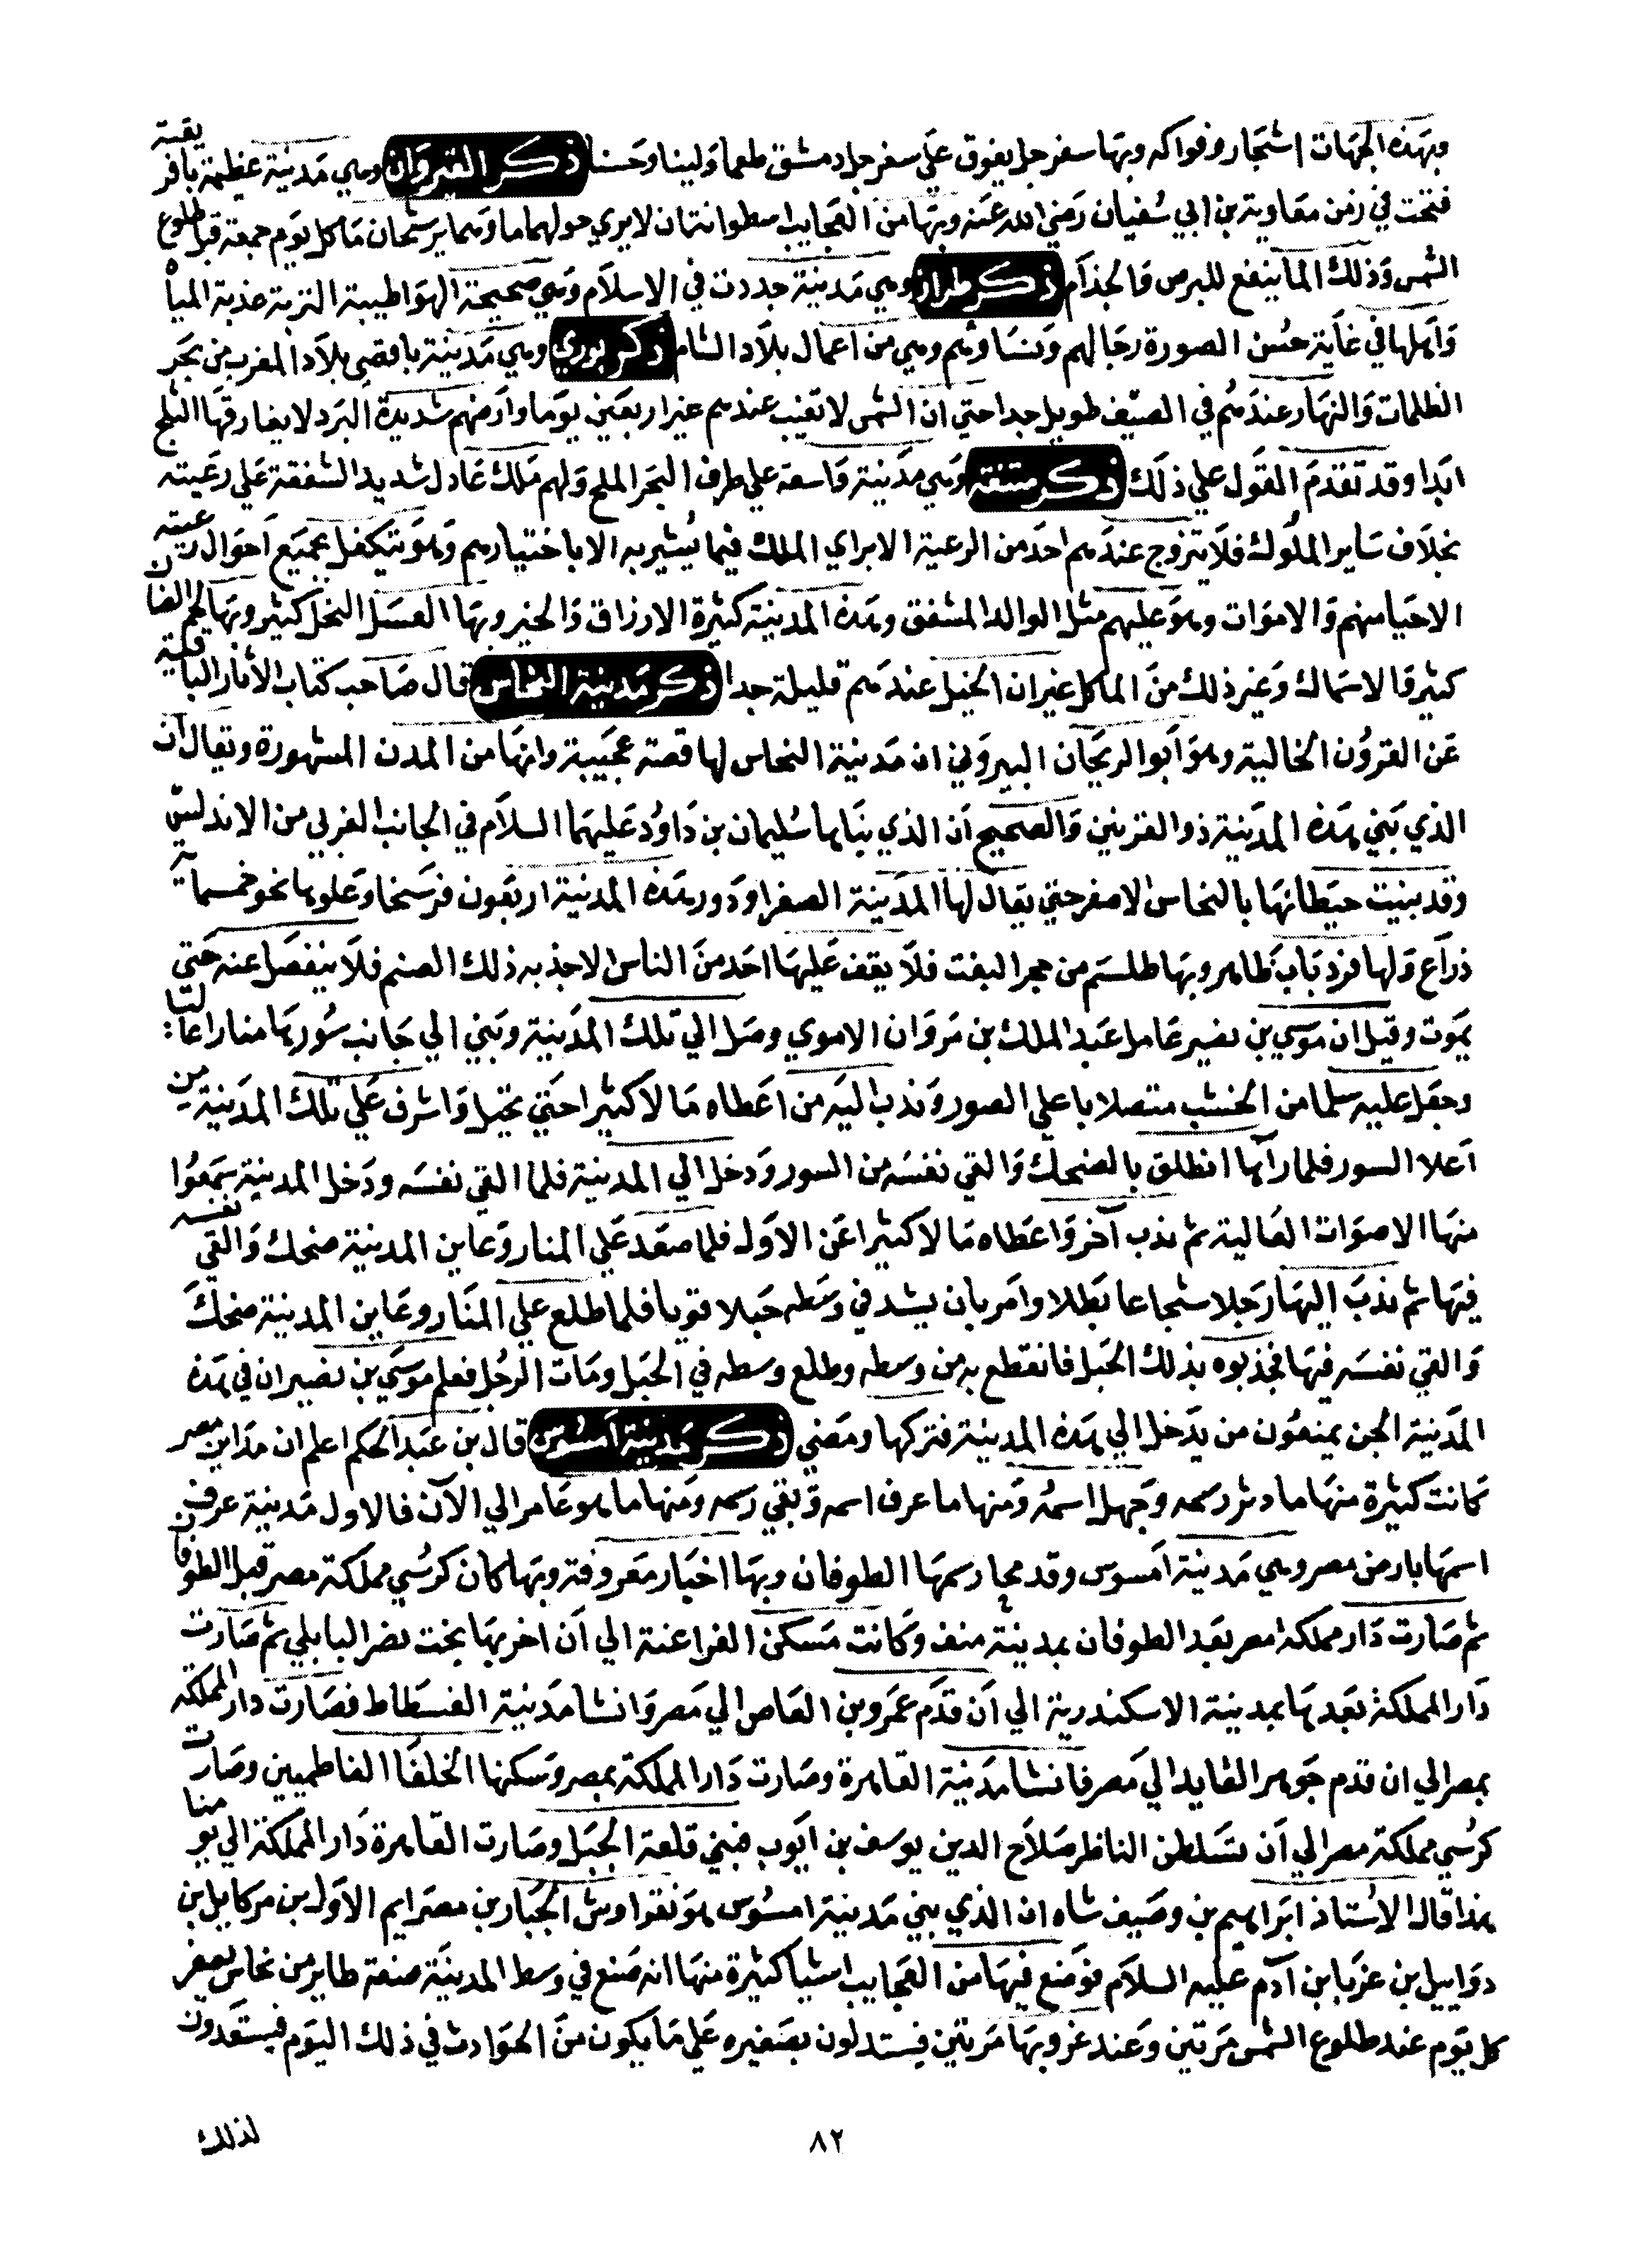 وبهذه الجهات اشجار وفواكه وبها سفرجل يفوق علي سفرجل دمشق طعما ولينا وحسنا ذكر القيروان وهي مدينة عظيمة بافريقية
فتحت في زمن معاوية بن ابي سفيان رضي الله عنه وبها من العجايب اسطوانتان لا يري حولهما ما وهما يرشحان ما كل يوم جمعة قبل طلوع
الشمس وذلك الما ينفع للبرص والجذام ذكر طراز وهي مدينة جددت في الاسلام وهي صحيحة الهوا طيبة التربة عذبة المياه
واهلها في غاية حسن الصورة رجالهم ونساوهم وهي من اعمال بلاد الشام ذكر وهي مدينة باقصي بلاد المغرب من بحر
الظلمات والنهار عندهم في الصيف طويل جدا حتي ان الشمس لا تغيب عندهم غير اربعين يوما وارضهم شديدة البرد لا يفارقها الثلج
ابدا وقد تقدم القول علي ذلك ذكر وهي مدينة واسعة علي طرف البحر الملح ولهم ملك عادل شديد الشفقة علي رعيته
بخلاف ساير الملوك فلا يتزوج عندهم احد من الرعية الا براي الملك فيما يشير به الا باختيارهم وهو يتكفل بجميع احوال رعيته
الاحيا منهم والاموات وهو عليهم مثل الوالد المشفق وهذه المدينة كثيرة الارزاق والخير وبها العسل النحل كثير وبها لحم الضان
كثير والاسماك وغير ذلك من الماكل غير ان الخيل عندهم قليلة جدا ذكر مدينة النحاس قال صاحب كتاب الاثار الباقية
عن القرون الخالية وهو ابو الريحان البيروني ان مدينة النحاس لها قصة عجيبة وانها من المدن المشهورة ويقال ان
الذي بني هذه المدينة ذو القرنين والصحيح ان الذي بناها سليمان بن داود عليهما السلام في الجانب الغربي من الاندلس
وقد بنيت حيطانها بالنحاس الاصفر حتي يقال لها المدينة الصفرا ودور هذه المدينة اربعون فرسخا وعلوها نحو خمسماية
ذراع ولها فرد باب ظاهر وبها طلسم من حجر البهت فلا يقف عليها احد من الناس الا جذبه ذلك الصنم فلا ينفصل عنه حتي
يموت وقيل ان موسي بن نصير عامل عبد الملك بن مروان الاموي وصل الي تلك المدينة وبني الي جانب سورها منارا عاليا
وجعل عليه سلما من الخشب متصلا باعلي الصور وندب اليه من اعطاه مالا كثيرا حتي تحيل واشرف علي تلك المدينة من
اعلا السور فلما رآها انطلق بالضحك والقي نفسه من السور ودخل الي المدينة فلما القي نفسه ودخل المدينة سمعوا
منها الاصوات العالية ثم ندب آخر واعطاه مالا كثيرا عن الاول فلما صعد علي المنار وعاين المدينة ضحك والقي نفسه
فيها ثم ندب اليها رجلا شجاعا بطلا وامر بان يشد في وسطه حبلا قويا فلما طلع علي المنار وعاين المدينة ضحك
والقي نفسه فيها فجذبوه بذلك الحبل فانقطع به من وسطه وطلع وسطه في الحبل ومات الرجل فعلم موسي بن نصير ان في هذه
المدينة الجن يمنعون من يدخل الي هذه المدينة فتركها ومضي ذكر مدينة امسوس قال بن عبد الحكم اعلم ان مداين مصر
كانت كثيرة منها ما دثر رسمه وجهل اسمه ومنها ما عرف اسمه وبقي رسمه ومنها ما هو عامر الي الآن فالاول مدينة عرف
اسمها بارض مصر وهي مدينة امسوس وقد محا رسمها الطوفان وبها اخبار معروفة وبها كان كرسي مملكة مصر قبل الطوفان
ثم صارت دار مملكة مصر بعد الطوفان بمدينة منف وكانت مسكن الفراعنة الي ان اخربها بخت نصر البابلي ثم صارت
دار المملكة بعدها بمدينة الاسكندرية الي ان قدم عمرو بن العاص الي مصر وانشا مدينة الفسطاط فصارت دار المملكة
بمصر الي ان قدم جوهر القايد الي مصر فانشا مدينة القاهرة وصارت دار المملكة بمصر وسكنها الخلفا الفاطميين وصارت
كرسي مملكة مصر الي ان تسلطن الناظر صلاح الدين يوسف بن ايوب فبني قلعة الجبل وصارت القاهرة دار المملكة الي يومنا
هذا قال الاستاذ ابراهيم بن وصيف شاه ان الذي بني مدينة امسوس هو نقراوش الجبار بن مصرايم الاول بن مركابيل بن
دوابيل بن عزبا بن آدم عليه السلام فوضع فيها من العجايب اشيا كثيرة منها انه صنع في وسط المدينة صنعة طاير من نحاس يصفر
كل يوم عند طلوع الشمس مرتين وعند غروبها مرتين فيستدلون بصفيره علي ما يكون من الحوادث في ذلك اليوم فيستعدون
لذلك
٨٢